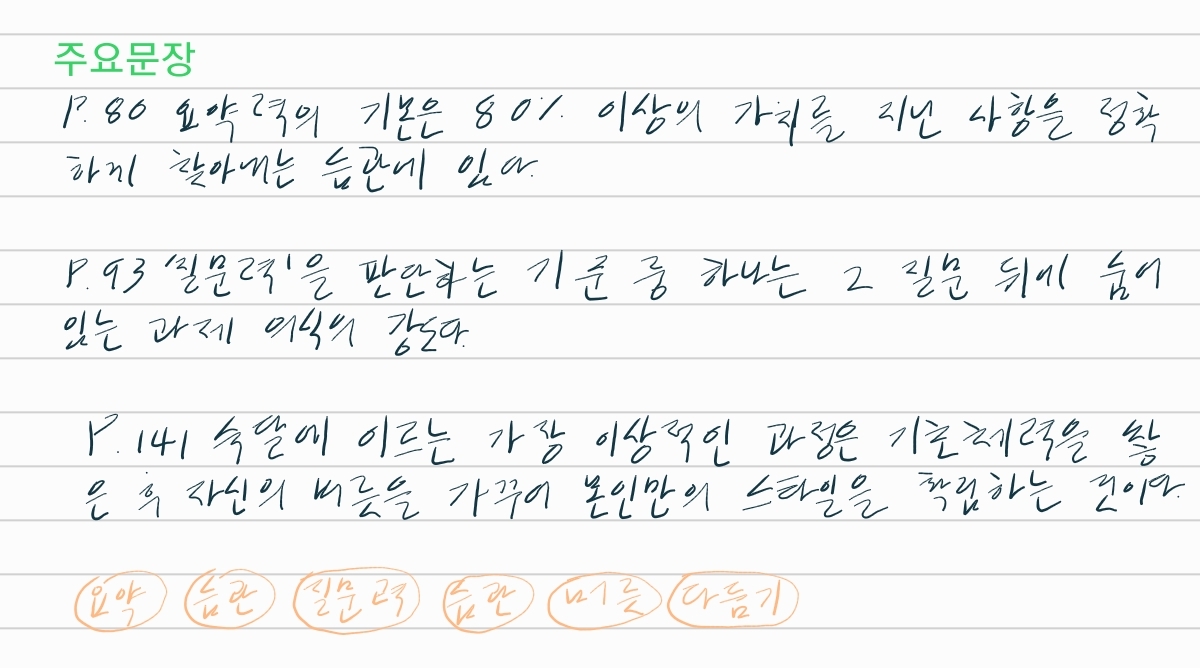 주요문장
P. 80 요약력의 기본은 80% 이상의 가치를 지닌 사항을 정확
하게 찾아내는 습관에 있다.
P. 93 '질문력'을 판단하는 기준 중 하나는 그 질문 뒤에 숨어
있는 과제 의식의 강도다.
P. 141 숙달에 이르는 가장 이상적인 과정은 기초체력을 쌓
은 후 자신의 버릇을 가꾸어 본인만의 스타일을 확립하는 것이다.
요약 습관 질문력 습관 버릇 다듬기